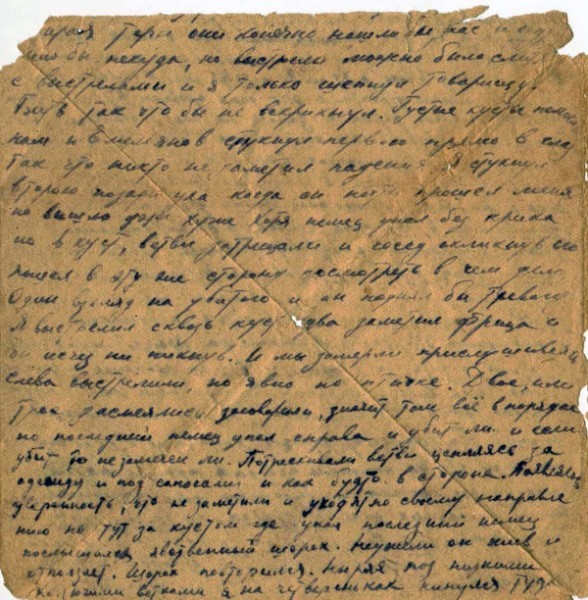 они конечно нашли бы нас и
бы некуда, но выстрелы можно было
с выстрелами и я только шепнул товарищу.
Бить так что бы не вскрикнул. Густые кусты
нам и стукнул первого прямо в глаз
так что никто не заметил падения. Я стукнул
второго позади уха когда он почти прошел меня
но вышло хуже хотя немец упал без крика
но в куст, ветви затрещали и сосед окликнув его
пошел в эту же сторону посмотреть в чем дело
Один взгляд на убитого и он поднял бы тревогу
Я выстрелил сквозь куст едва заметил фрица и
он исчез ни пикнув. И мы замерли прислушиваясь
слева выстрелили, но явно по птичке. Двое, или
трое засмеялись, заговорили, значит там всё в порядке
но последний немец упал справа и убит ли и если
убит то незамечен ли. Потрескивали ветви цепляясь за
одежду и под сапогами и как будто в стороне.
уверенность, что не заметили и уходят по своему направле
нию но тут за кустом где упал последний немец
послышался явственный шорох. Неужели он жив и
отползает. Шорох повторился. Ныряя под низкими
ветками я на четвереньках кинулся туда